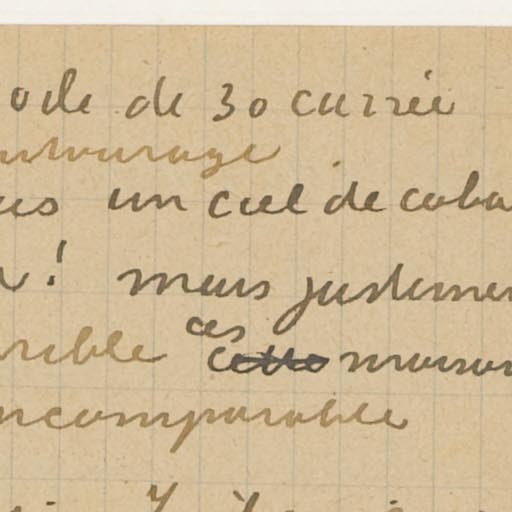 oile de 30 carrée
entourage
us un ciel de coba
! mais justemen
rible ces cette maison
incomparable